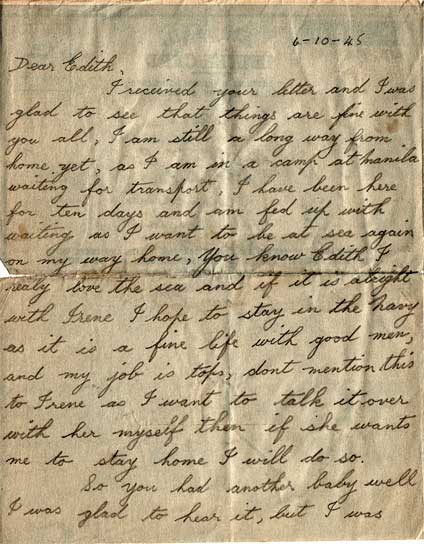 6-10-45
Dear Edith,
I received your letter and I was
glad to see that things are fine with
you all, I am still a long way from
home yet, as I am in a camp at Manila
waiting for transport, I have been here
for ten days and am fed up with
waiting as I want to be at sea again
on my way home, You know Edith I
realy love the sea and if it is alright
with Irene I hope to stay in the Navy
as it is a fine life with good men,
and my job is tops, dont mention this
to Irene as I want to talk it over
with her myself then if she wants
me to stay home I will do so.
So you had another baby well
I was glad to hear it, but I was